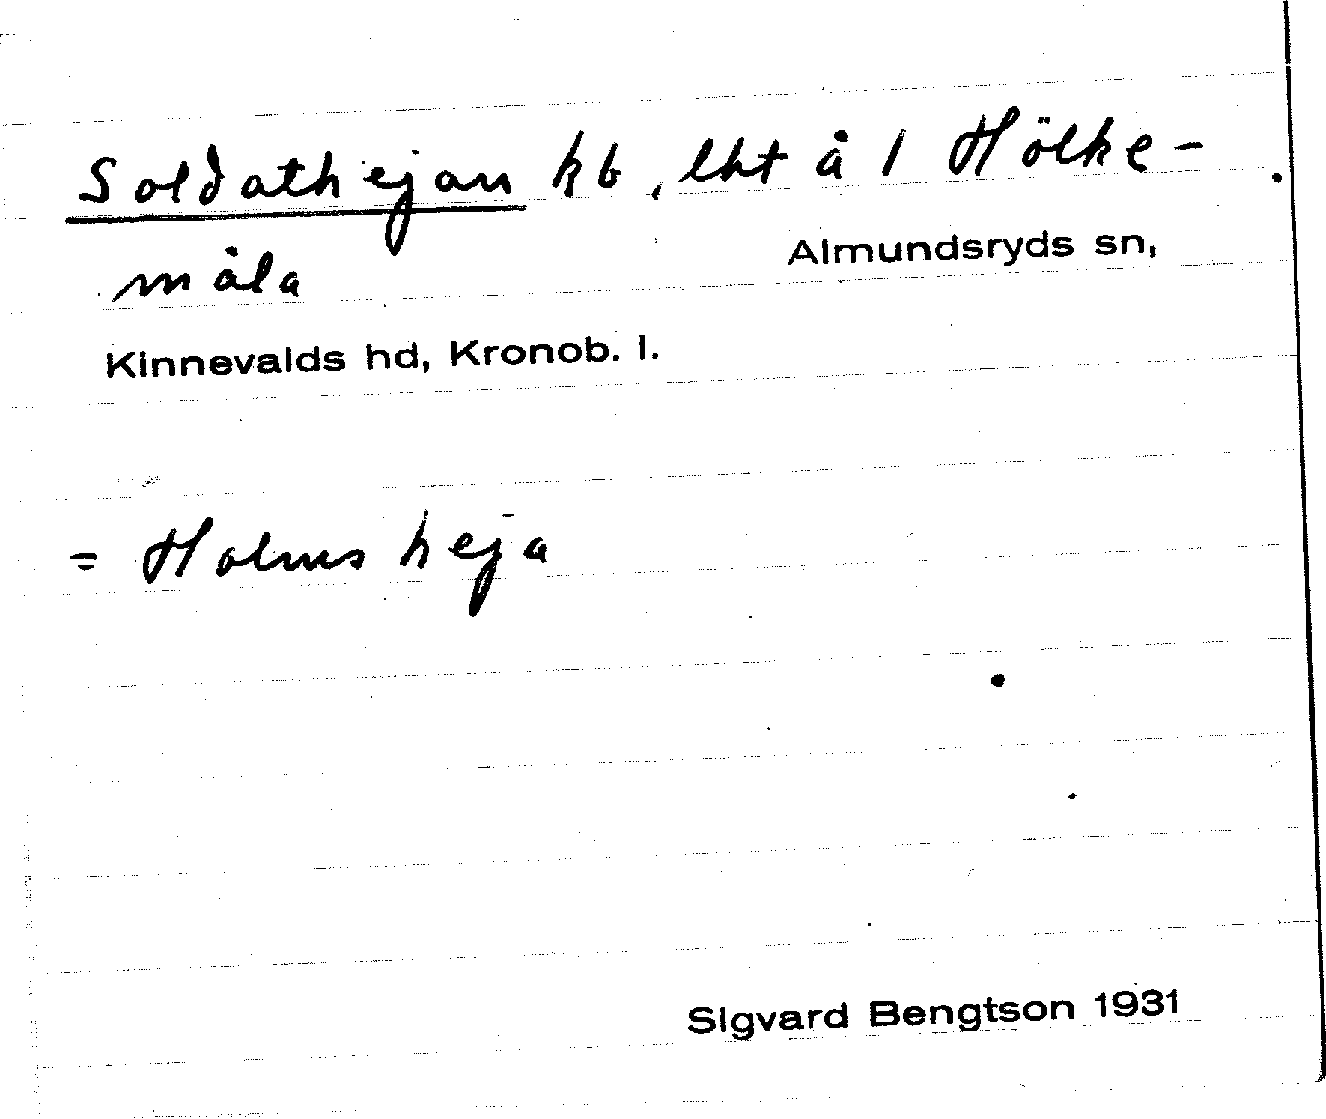 Soldathejan kb, lht å 1 Hölke-
måla Almundsryds sn,
Kinnevalds hd, Kronob. l.
= Holms heja
Sigvard Bengtson 1931